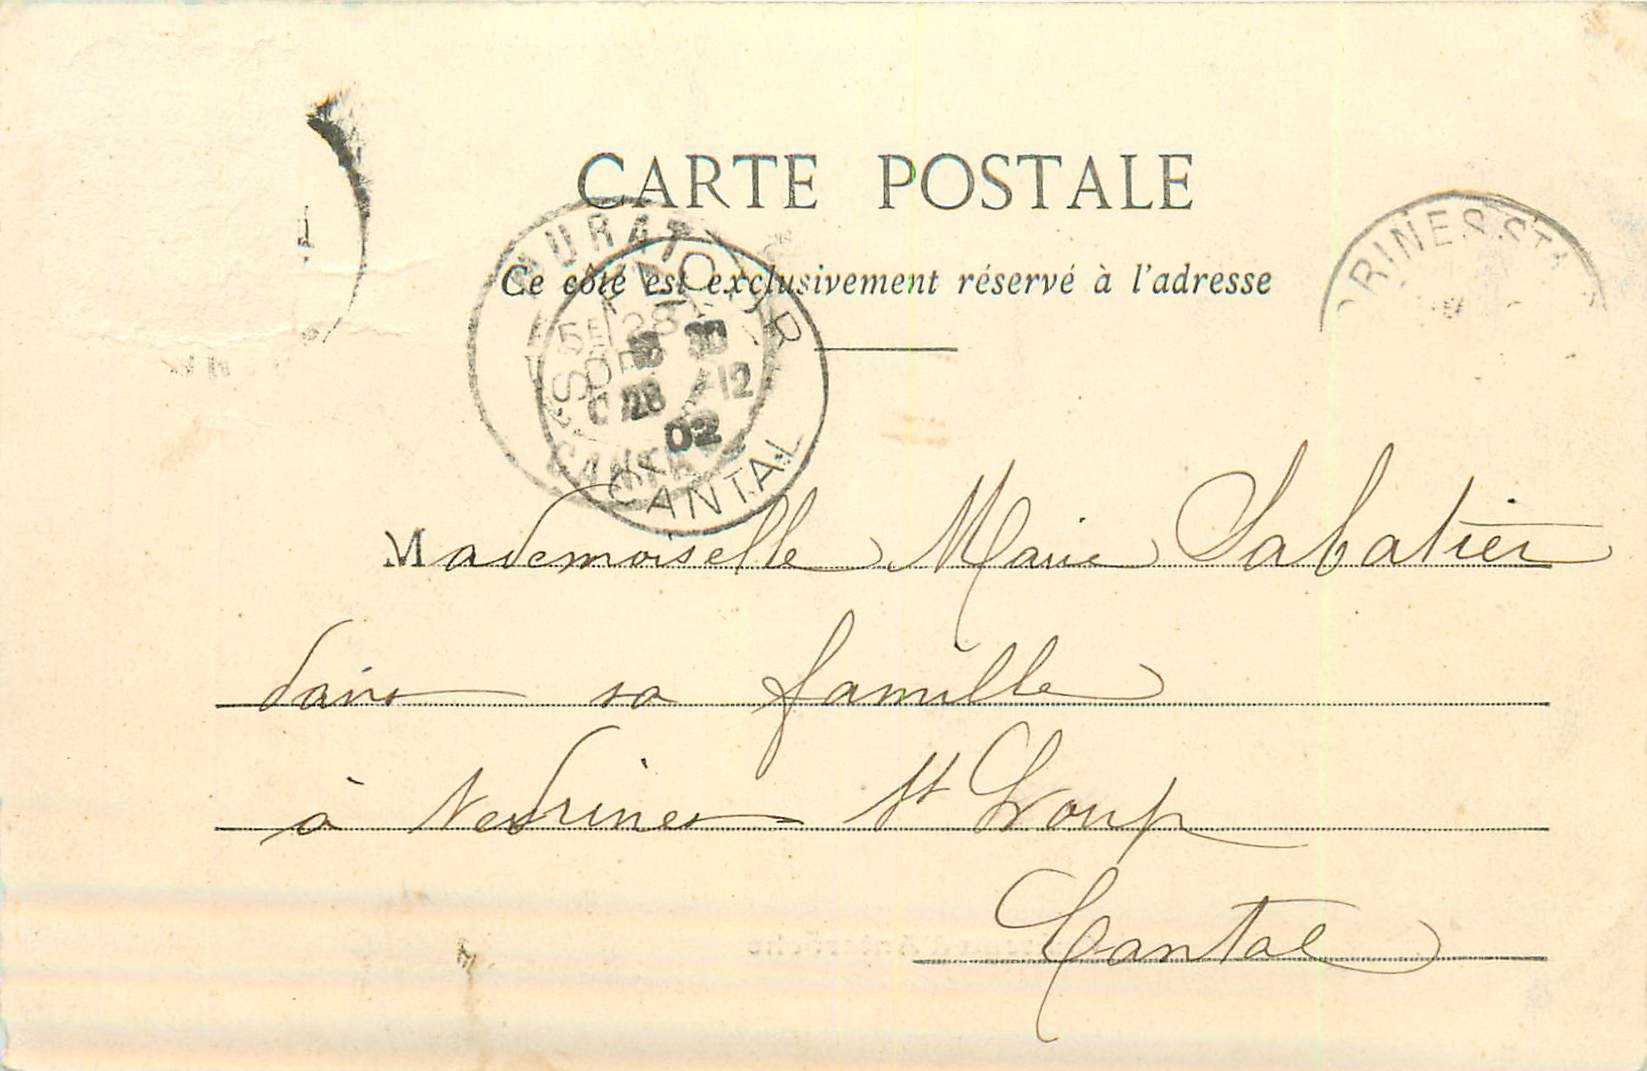 CARTE POSTALE
Ce côté est exclusivement réservé à l'adresse
MURAT
28 -12
02
CANTAL
ST FLOUR
CANTAL
DRINES-ST
Mademoiselle Marie Sabatier
dans sa famille
à Vedrines St Loup
Cantal